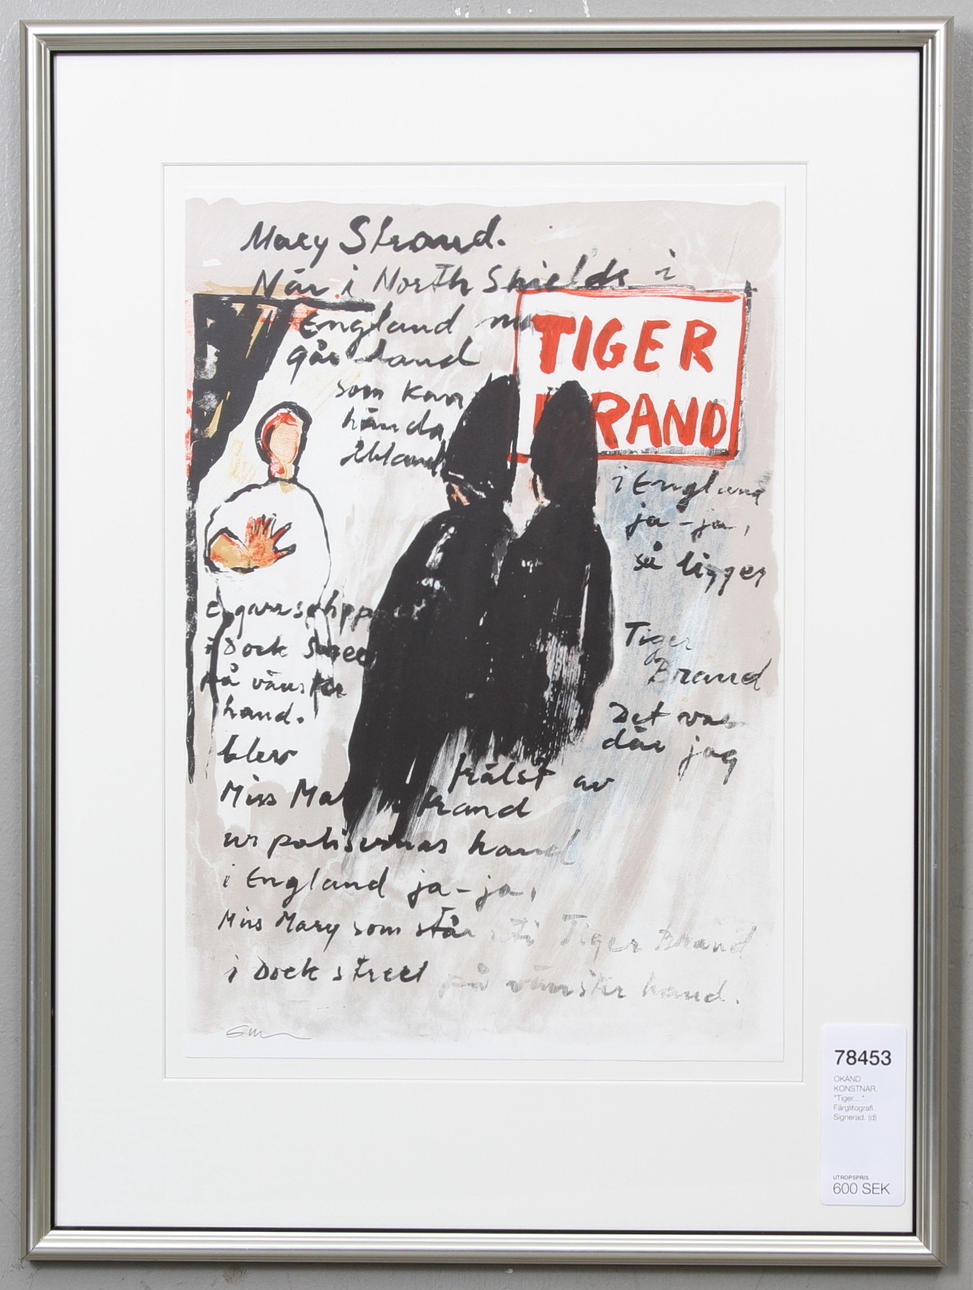 Mary Strand.
När i North Shields i
England
går land
som kan
hända
ibland
TIGER
BRAND
i England
ja-ja,
så ligger
Tiger
Brand
Det var
där jag
i Dock Street
på vänster
hand.
blev
frälst av
Miss Ma rand
ur polisernas hand
i England ja-ja,
Miss Mary som står i Tiger Brand
i Dock street på vänster hand.
78453
OKÄND
KONSTNÄR.
"Tiger..."
Färglitografi.
Signerad. (d)
UTROPSPRIS
600 SEK